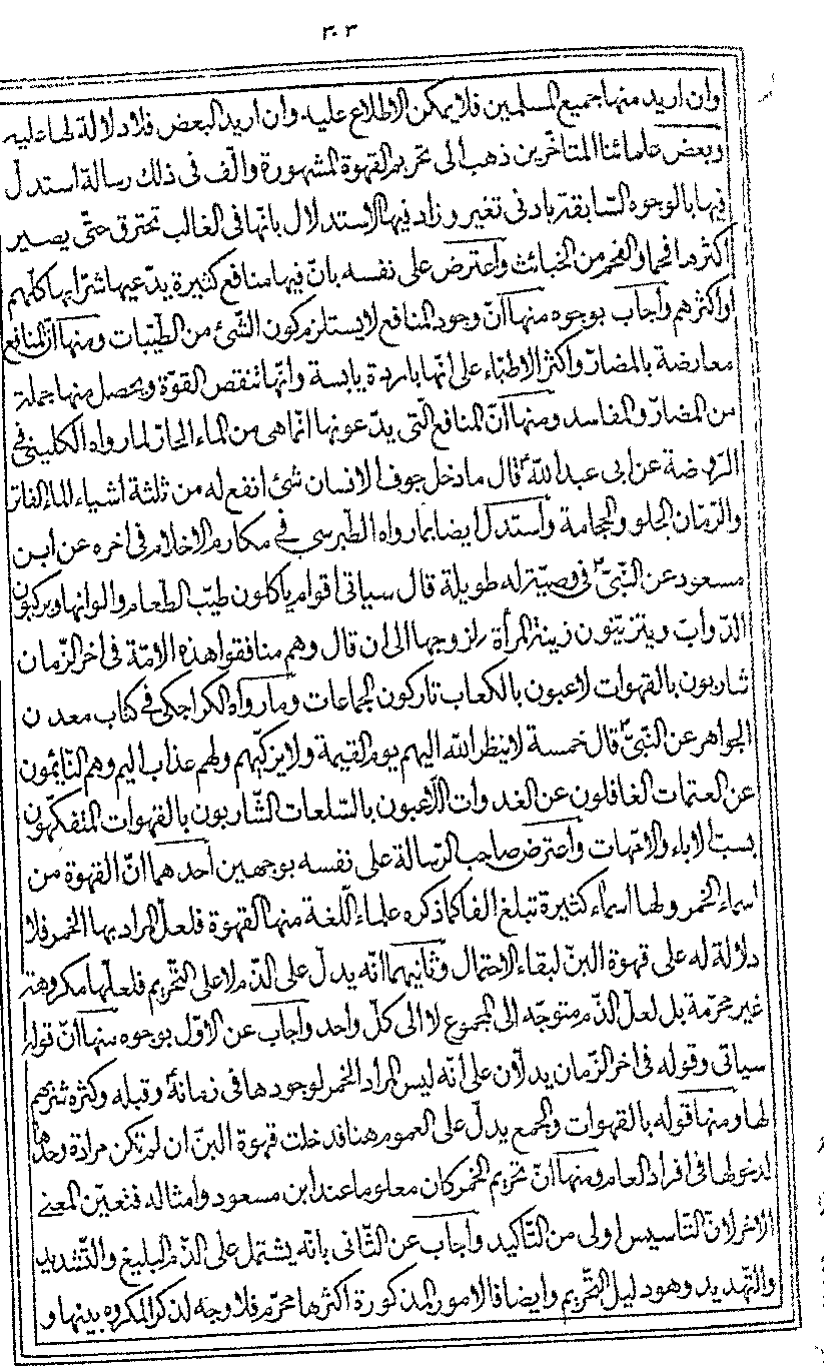 ٣٠٣
وان اريد منها جميع المسلمين فلا يمكن الاطلاع عليه وان اريد البعض فلا دلالة لها عليه
وبعض علمائنا المتاخّرين ذهب الى تحريم القهوة المشهورة والّف فى ذلك رسالة استدلّ
فيها بالوجوه السّابقة بادنى تغير وزاد فيها الاستدلال بانّها فى الغالب تحترق حتّى يصير
اكثرها فحما والفحم من الخبائث واعترض على نفسه بانّ فيها منافع كثيرة يدّعيها شرّابها كلّهم
او اكثرهم واجاب بوجوه منها انّ وجود المنافع لا يستلزم كون الشّئ من الطّيّبات ومنها انّ المنافع
معارضة بالمضارّ واكثر الاطبّاء على انّها باردة يابسة وانّها تنقص القوّة ويحصل منها جملة
من المضارّ والمفاسد ومنها انّ المنافع الّتى يدّعونها انّما هى من الماء الحارّ لما رواه الكلينى فى
الرّوضة عن ابى عبد اللّه ع قال ما دخل جوف الانسان شئ انفع له من ثلثة اشياء الماء الفاتر
والرّمّان الحلو والحجامة واستدلّ ايضا بما رواه الطّبرسى فى مكارم الاخلاق فى اخره عن ابن
مسعود عن النّبىّ ص فى وصيّة له طويلة قال سياتى اقوام ياكلون طيّب الطّعام والوانها ويركبون
الدّوابّ ويتزيّنون زينة المرأة لزوجها الى ان قال وهم منافقوا هذه الامّة فى اخر الزّمان
شاربون بالقهوات لاعبون بالكعاب تاركون الجماعات وما رواه الكراجكى فى كتاب معدن
الجواهر عن النّبىّ ص قال خمسة لا ينظر اللّه اليهم يوم القيمة ولا يزكّيهم ولهم عذاب اليم وهم النّائمون
عن العتمات الغافلون عن الغدوات اللّاعبون بالسّلعات الشّاربون بالقهوات المتفكّهون
بسبّ الاباء والامّهات واعترض صاحب الرّسالة على نفسه بوجهين احدهما انّ القهوة من
اسماء الخمر ولها اسماء كثيرة تبلغ الفا كما ذكره علماء اللّغة منها القهوة فلعلّ المراد بها الخمر فلا
دلالة له على قهوة البنّ لبقاء الاحتمال وثانيهما انّه يدلّ على الذّم لا على التّحريم فلعلّها مكروهة
غير محرّمة بل لعلّ الذّم متوجّه الى المجموع لا الى كلّ واحد واجاب عن الاوّل بوجوه منها انّ قوله
سياتى وقوله فى اخر الزّمان يدلّان على انّه ليس المراد الخمر لوجودها فى زمانه ع وقبله وكثرة شربهم
لها ومنها قوله بالقهوات والجمع يدلّ على العموم هنا فدخلت قهوة البنّ ان لم تكن مرادة وحدها
لدخولها فى افراد العام ومنها انّ تحريم الخمر كان معلوما عند ابن مسعود وامثاله فتعيّن المعنى
الاخر لانّ التّاسيس اولى من التّاكيد واجاب عن الثّانى بانّه يشتمل على الذّم البليغ والتّشديد
والتّهديد وهو دليل التّحريم وايضا فالامور المذكورة اكثرها محرّم فلا وجه لذكر المكروه بينها و